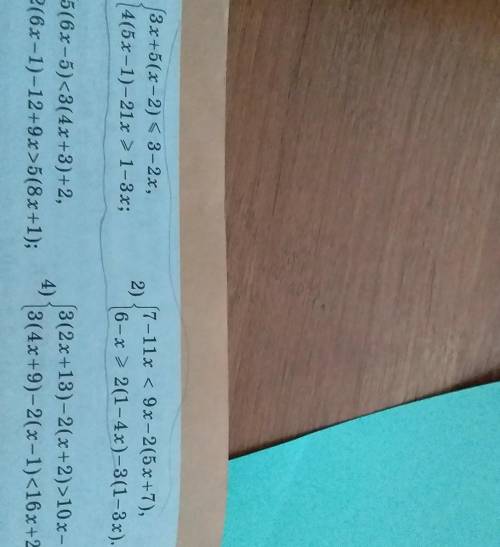 {3x+5(x−2)⩽3−2x,
{4(5x−1)−21x⩾1−3x;
2) {7−11x < 9x−2(5x+7),
{6−x⩾2(1−4x)−3(1−3x).
5(6x−5)<3(4x+3)+2,
2(6x−1)−12+9x>5(8x+1);
4) {3(2x+13)−2(x+2)>10x−
{3(4x+9)−2(x−1)<16x+2